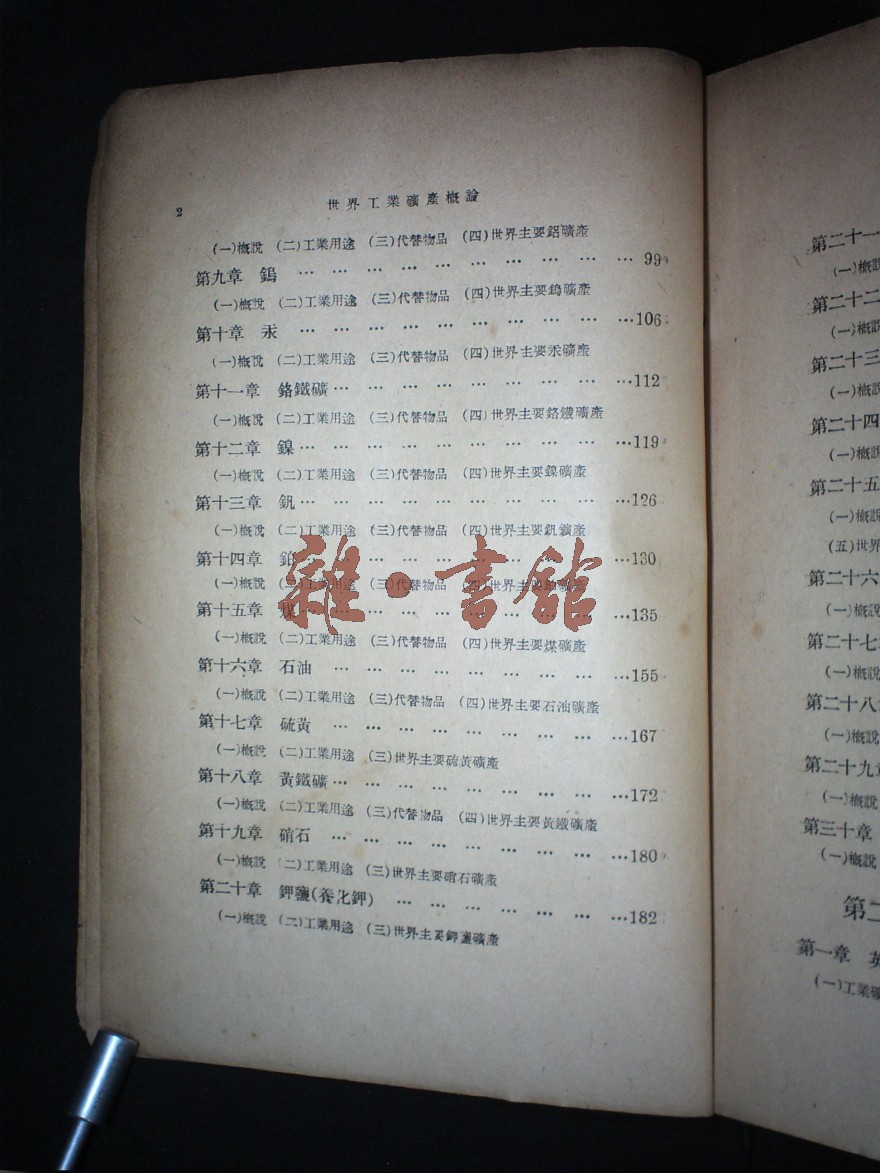 2
世界工業礦產概論
(一)概說 (二)工業用途 (三)代替物品 (四)世界主要鋁礦產
第九章 鎢 … … … … … … … … … … 99
(一)概說 (二)工業用途 (三)代替物品 (四)世界主要鎢礦產
第十章 汞 … … … … … … … … … …106
(一)概說 (二)工業用途 (三)代替物品 (四)世界主要汞礦產
第十一章 鉻鐵礦… … … … … … … … …112
(一)概說 (二)工業用途 (三)代替物品 (四)世界主要鉻鐵礦產
第十二章 鎳… … … … … … … … … …119
(一)概說 (二)工業用途 (三)代替物品 (四)世界主要鎳礦產
第十三章 釩… … … … … … … … … …126
(一)概說 (二)工業用途 (三)代替物品 (四)世界主要釩礦產
第十四章 鉑… … … … … … … … … …130
(一)概說 (二)工業用途 (三)代替物品 (四)世界主要鉑礦產
第十五章 煤… … … … … … … … … …135
(一)概說 (二)工業用途 (三)代替物品 (四)世界主要煤礦產
第十六章 石油 … … … … … … … … …155
(一)概說 (二)工業用途 (三)代替物品 (四)世界主要石油礦產
第十七章 硫黃 … … … … … … … … …167
(一)概說 (二)工業用途 (三)世界主要硫黃礦產
第十八章 黃鐵礦… … … … … … … … …172
(一)概說 (二)工業用途 (三)代替物品 (四)世界主要黃鐵礦產
第十九章 硝石 … … … … … … … … …180
(一)概說 (二)工業用途 (三)世界主要硝石礦產
第二十章 鉀鹽(養化鉀) … … … … … … …182
(一)概說 (二)工業用途 (三)世界主要鉀鹽礦產
雜·書館
第二十一
(一)概說
第二十二
(一)概說
第二十三
(一)概說
第二十四
(一)概說
第二十五
(一)概說
(五)世界
第二十六
(一)概說
第二十七
(一)概說
第二十八
(一)概說
第二十九
(一)概說
第三十章
(一)概說
第二
第一章 英
(一)工業礦